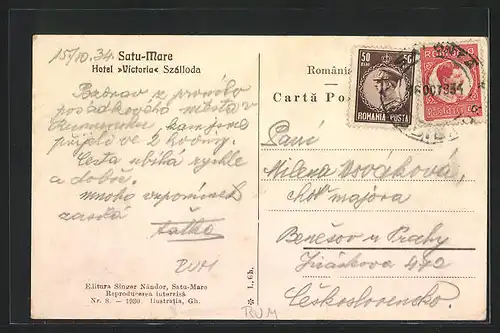 15/10.34.
Satu-Mare
Hotel »Victoria« Szálloda
Pozdrav z prvního
posádkového města v
Rumunsku kam jsem
přijel ve 2 hodiny.
Cesta ubíhá rychle
a dobře.
Mnoho vzpomínek
zasílá
Taťka
RUM
Editura Singer Nándor, Satu-Mare
Reproducerea interzisă
Nr. 8. – 1930 Ilustrația, Gh.
✲ I., Gh.
RUM
România
Carta Po
50 BANI
POSTA
ROMANIA·POSTA
16 OCT 934
Paní
Milena Nováková,
choť majora
Benešov u Prahy
Jiráskova 472
Československo.